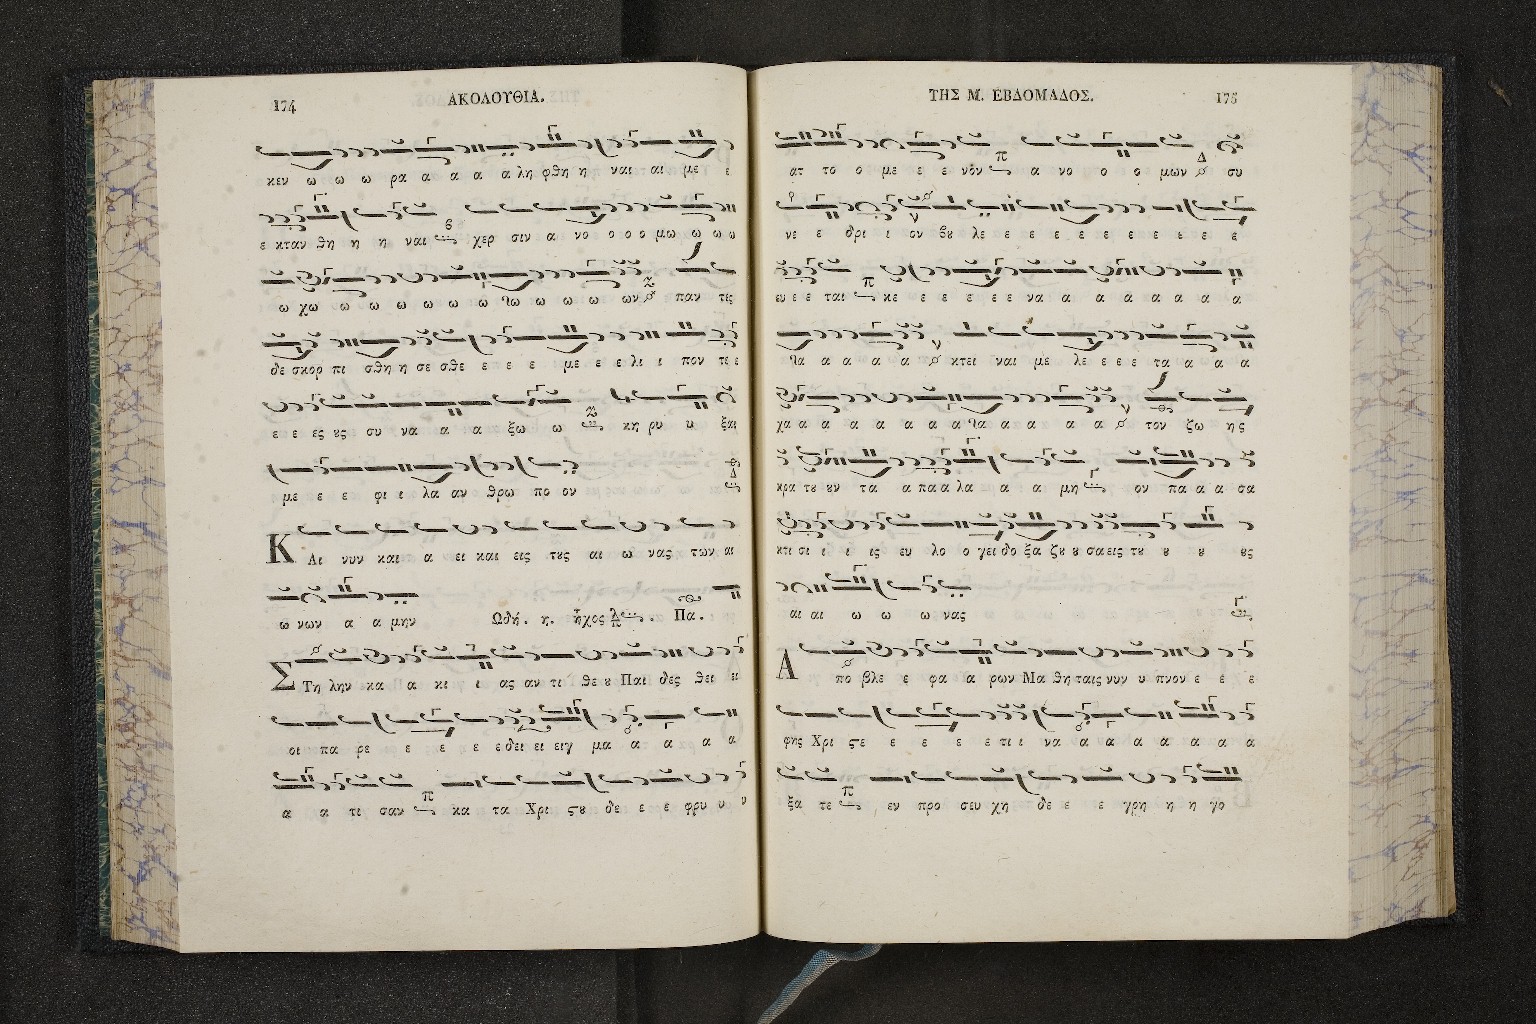 174
ΑΚΟΛΟΥΘΙΑ.
κεν ω ω ω ρα α α α α λη φθη η ναι αι με ε
ε κταν θη η η ναι χερ σιν α νο ο ο ο μω ω ω ω
ω χω ω ω ω ω ω ω ω ω ω ω ων παν τες
δε σκορ πι σθη η σε σθε ε ε ε με ε ε λι ι πον τε ε
ε ε ες ȣς συ να α α ξω ω κη ρυ υ ξαι
με ε ε φι ι λα αν θρω πο ον
Και νυν και α ει και εις τȣς αι ω νας των αι
ω νων α α μην Ωδή. η. ἦχος Πα.
Στη λην κα α κι ι ας αν τι θε ȣ Παι δες θει ει
οι πα ρε ε ε ε ε ε δει ει ειγ μα α α α α
α α τι σαν κα τα Χρι ςȣ δε ε ε φρυ υ υ
ΤΗΣ Μ. ΕΒΔΟΜΑΔΟΣ.
175
ατ το ο με ε ε νον α νο ο ο μων συ
νε ε δρι ι ον βȣ λε ε ε ε ε ε ε ε ε ε
ευ ε ε ται κε ε ε ε ε ε να α α α α α α α
α α α α κτει ναι με λε ε ε ε τα α α α
χα α α α α α α α α α α α α τον ζω ης
κρα τȣ ȣν τα α πα α λα α α μη ον πα α α σα
κτι σι ι ι ις ευ λο ο γει δο ξα ζȣ ȣ σα εις τȣ ȣ ȣ ȣς
αι αι ω ω ω νας
Απο βλε ε φα α ρων Μα θη ταις νυν υ πνον ε ε ε
φης Χρι ςε ε ε ε ε τι ι να α α α α α α α
ξα τε εν προ σευ χη δε ε ε γρη η η γο